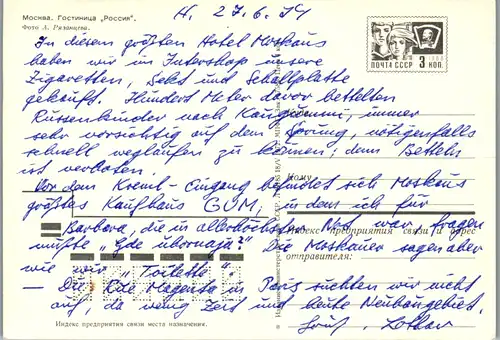 Москва. Гостиница „Россия".
Фото А. Рязанцева.
H. 27.6.74
ПОЧТА СССР 3 КОП.
1966
In diesem größten Hotel Moskaus
haben wir im Intershop unsere
Zigaretten Sekt und Schallplatte
gekauft. Hundert Meter davor bettelten
Russenkinder nach Kaugummi, immer
sehr vorsichtig auf dem Sprung, nötigenfalls
schnell weglaufen zu können; denn Betteln
ist verboten.
Кому
Vor dem Kreml-Eingang befindet sich Moskaus
größtes Kaufhaus GUM, in dem ich für
Индекс предприятия связи и адрес
отправителя:
Barbara, die in allerhöchster Not war, fragen
mußte „Gde übornaja?" Die Moskauer sagen aber
wie wir „Toilette".
– Die Rue Magenta in Paris suchten wir nicht
auf, da wenig Zeit und heute Neubaugebiet.
Gruß, Lothar
Индекс предприятия связи места назначения.